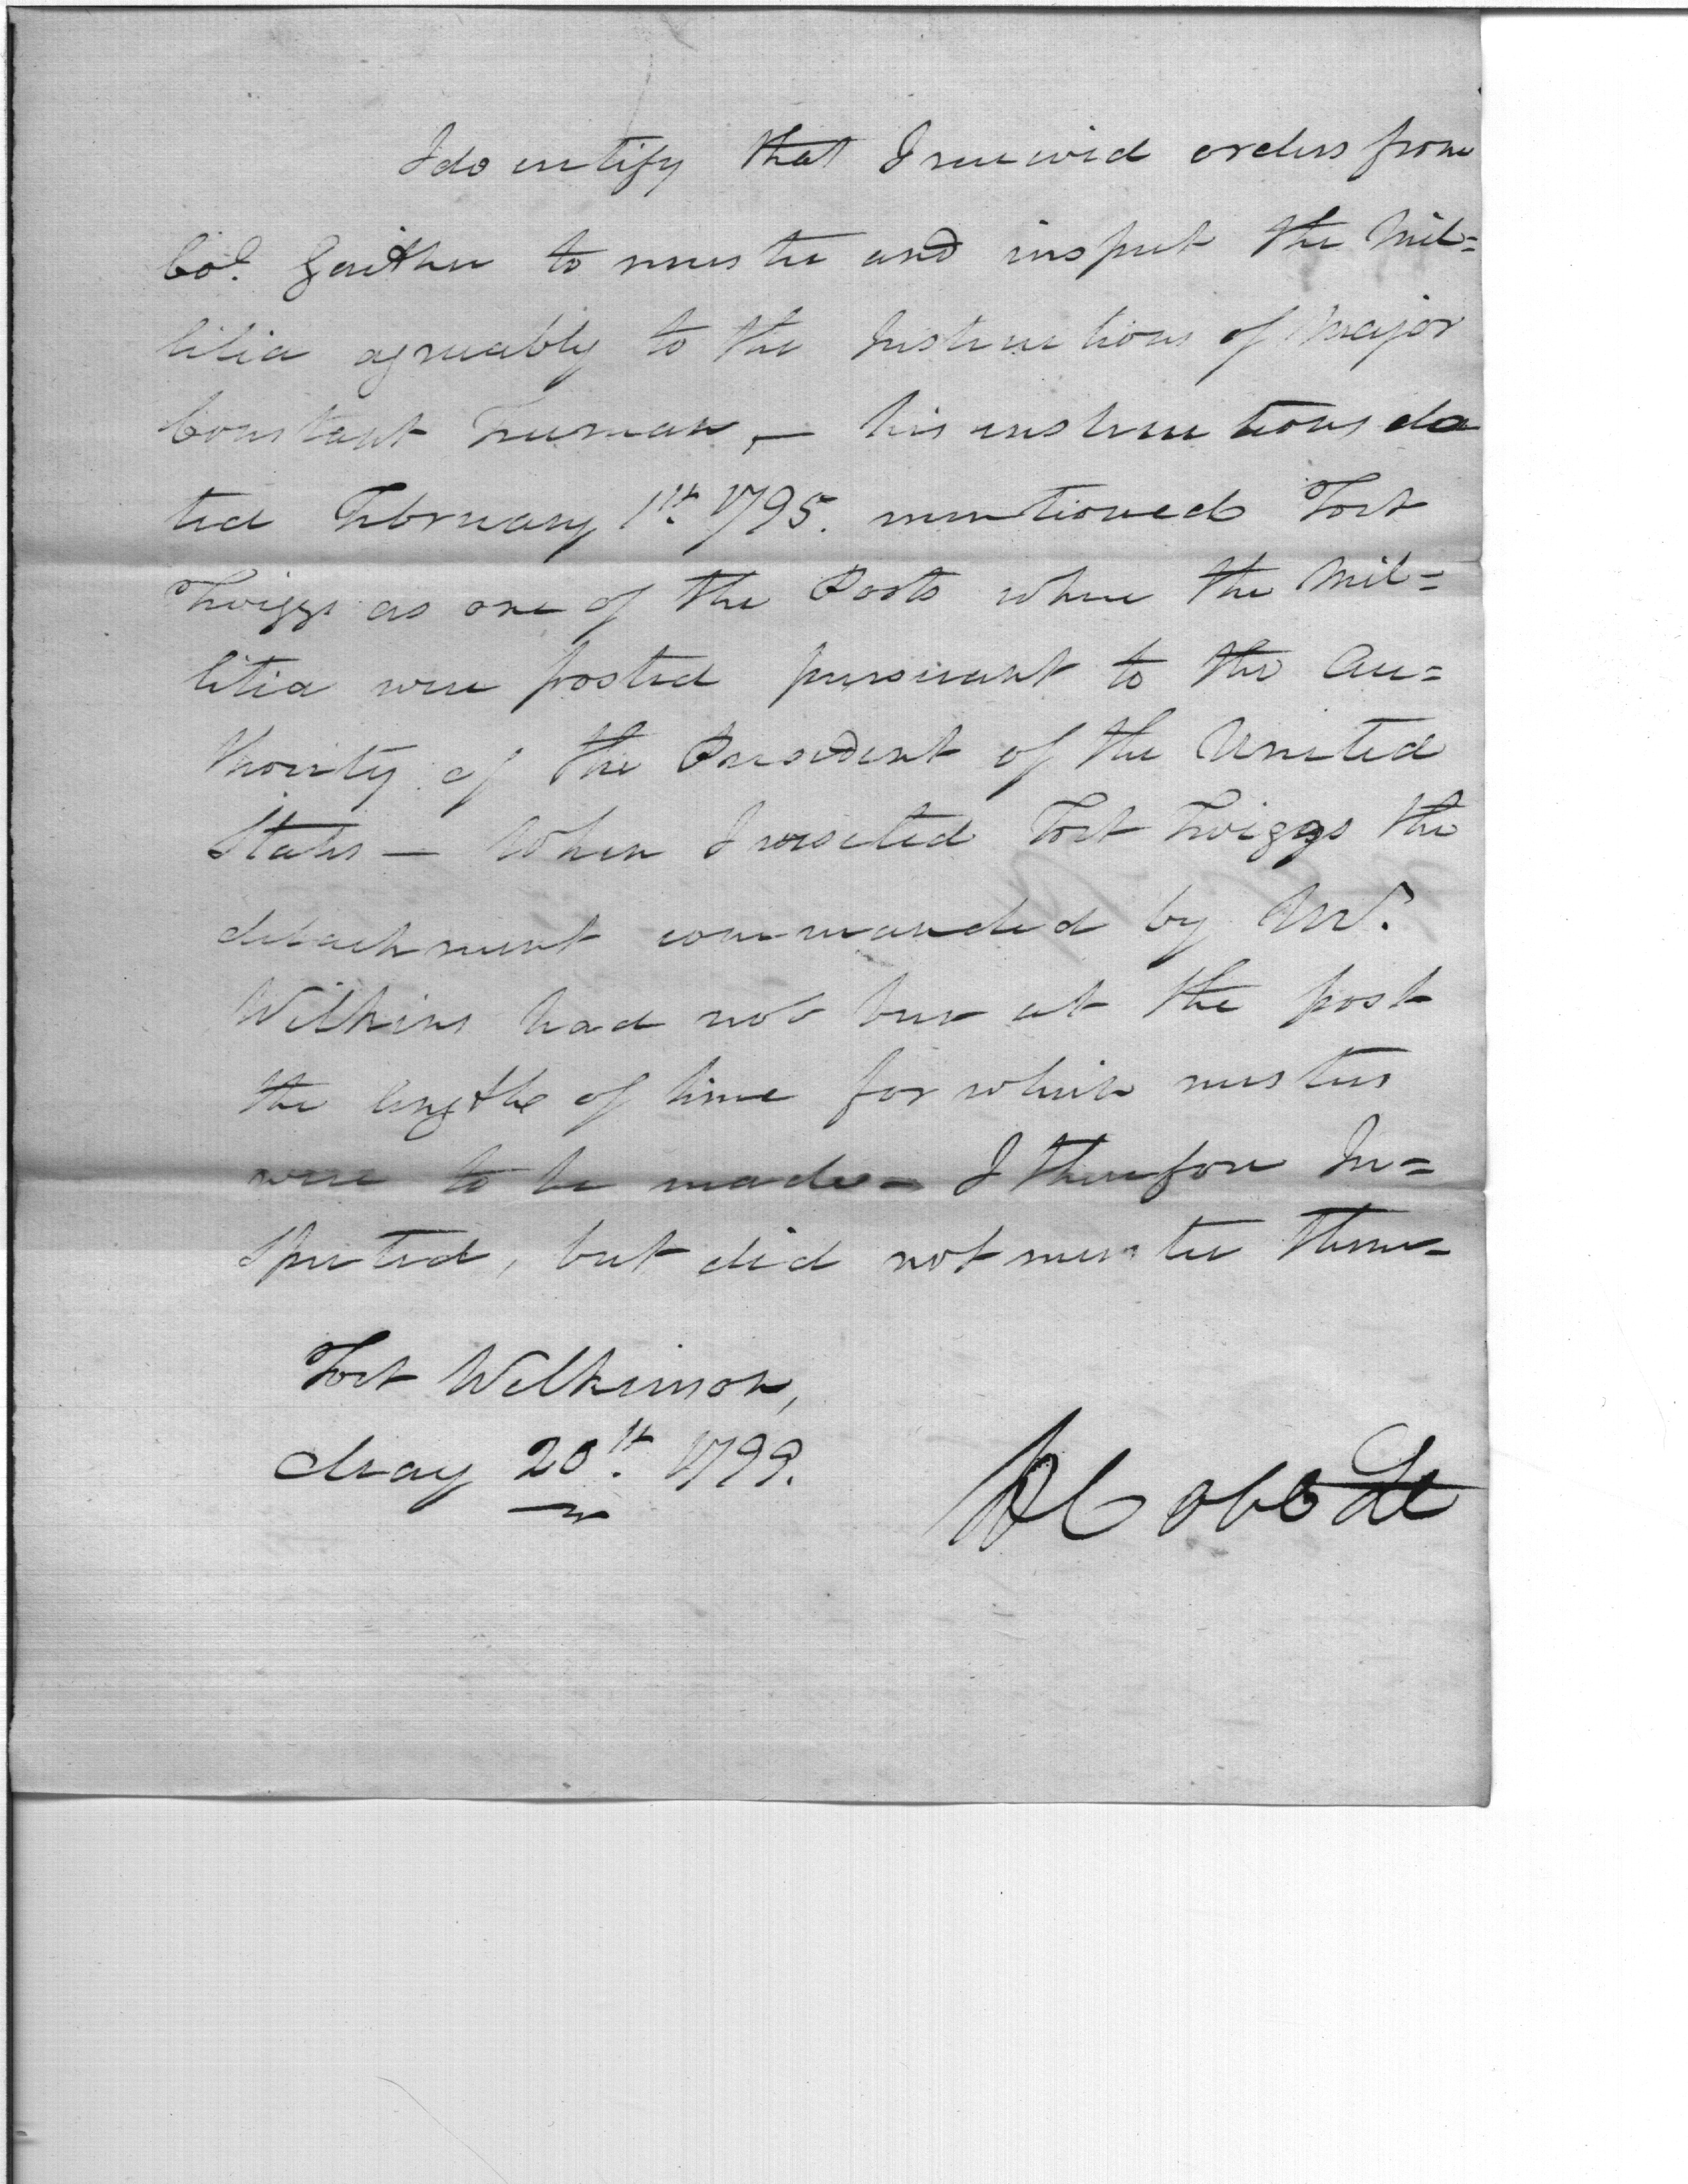 I do certify that I received orders from
Col. Gaither to muster and inspect the Mil=
litia agreeably to the Instructions of Major
Constant Freeman, — his instructions da
ted February 1st. 1795. mentioned Fort
Twiggs as one of the Posts where the Mil=
litia were posted pursuant to the Au=
thority of the President of the United
States — When I visited Fort Twiggs the
detachment commanded by Mr.
Wilkins had not been at the post
the length of time for which musters
were to be made — I therefore In=
spected, but did not muster them —
Fort Wilkinson,
May 20th. 1799.